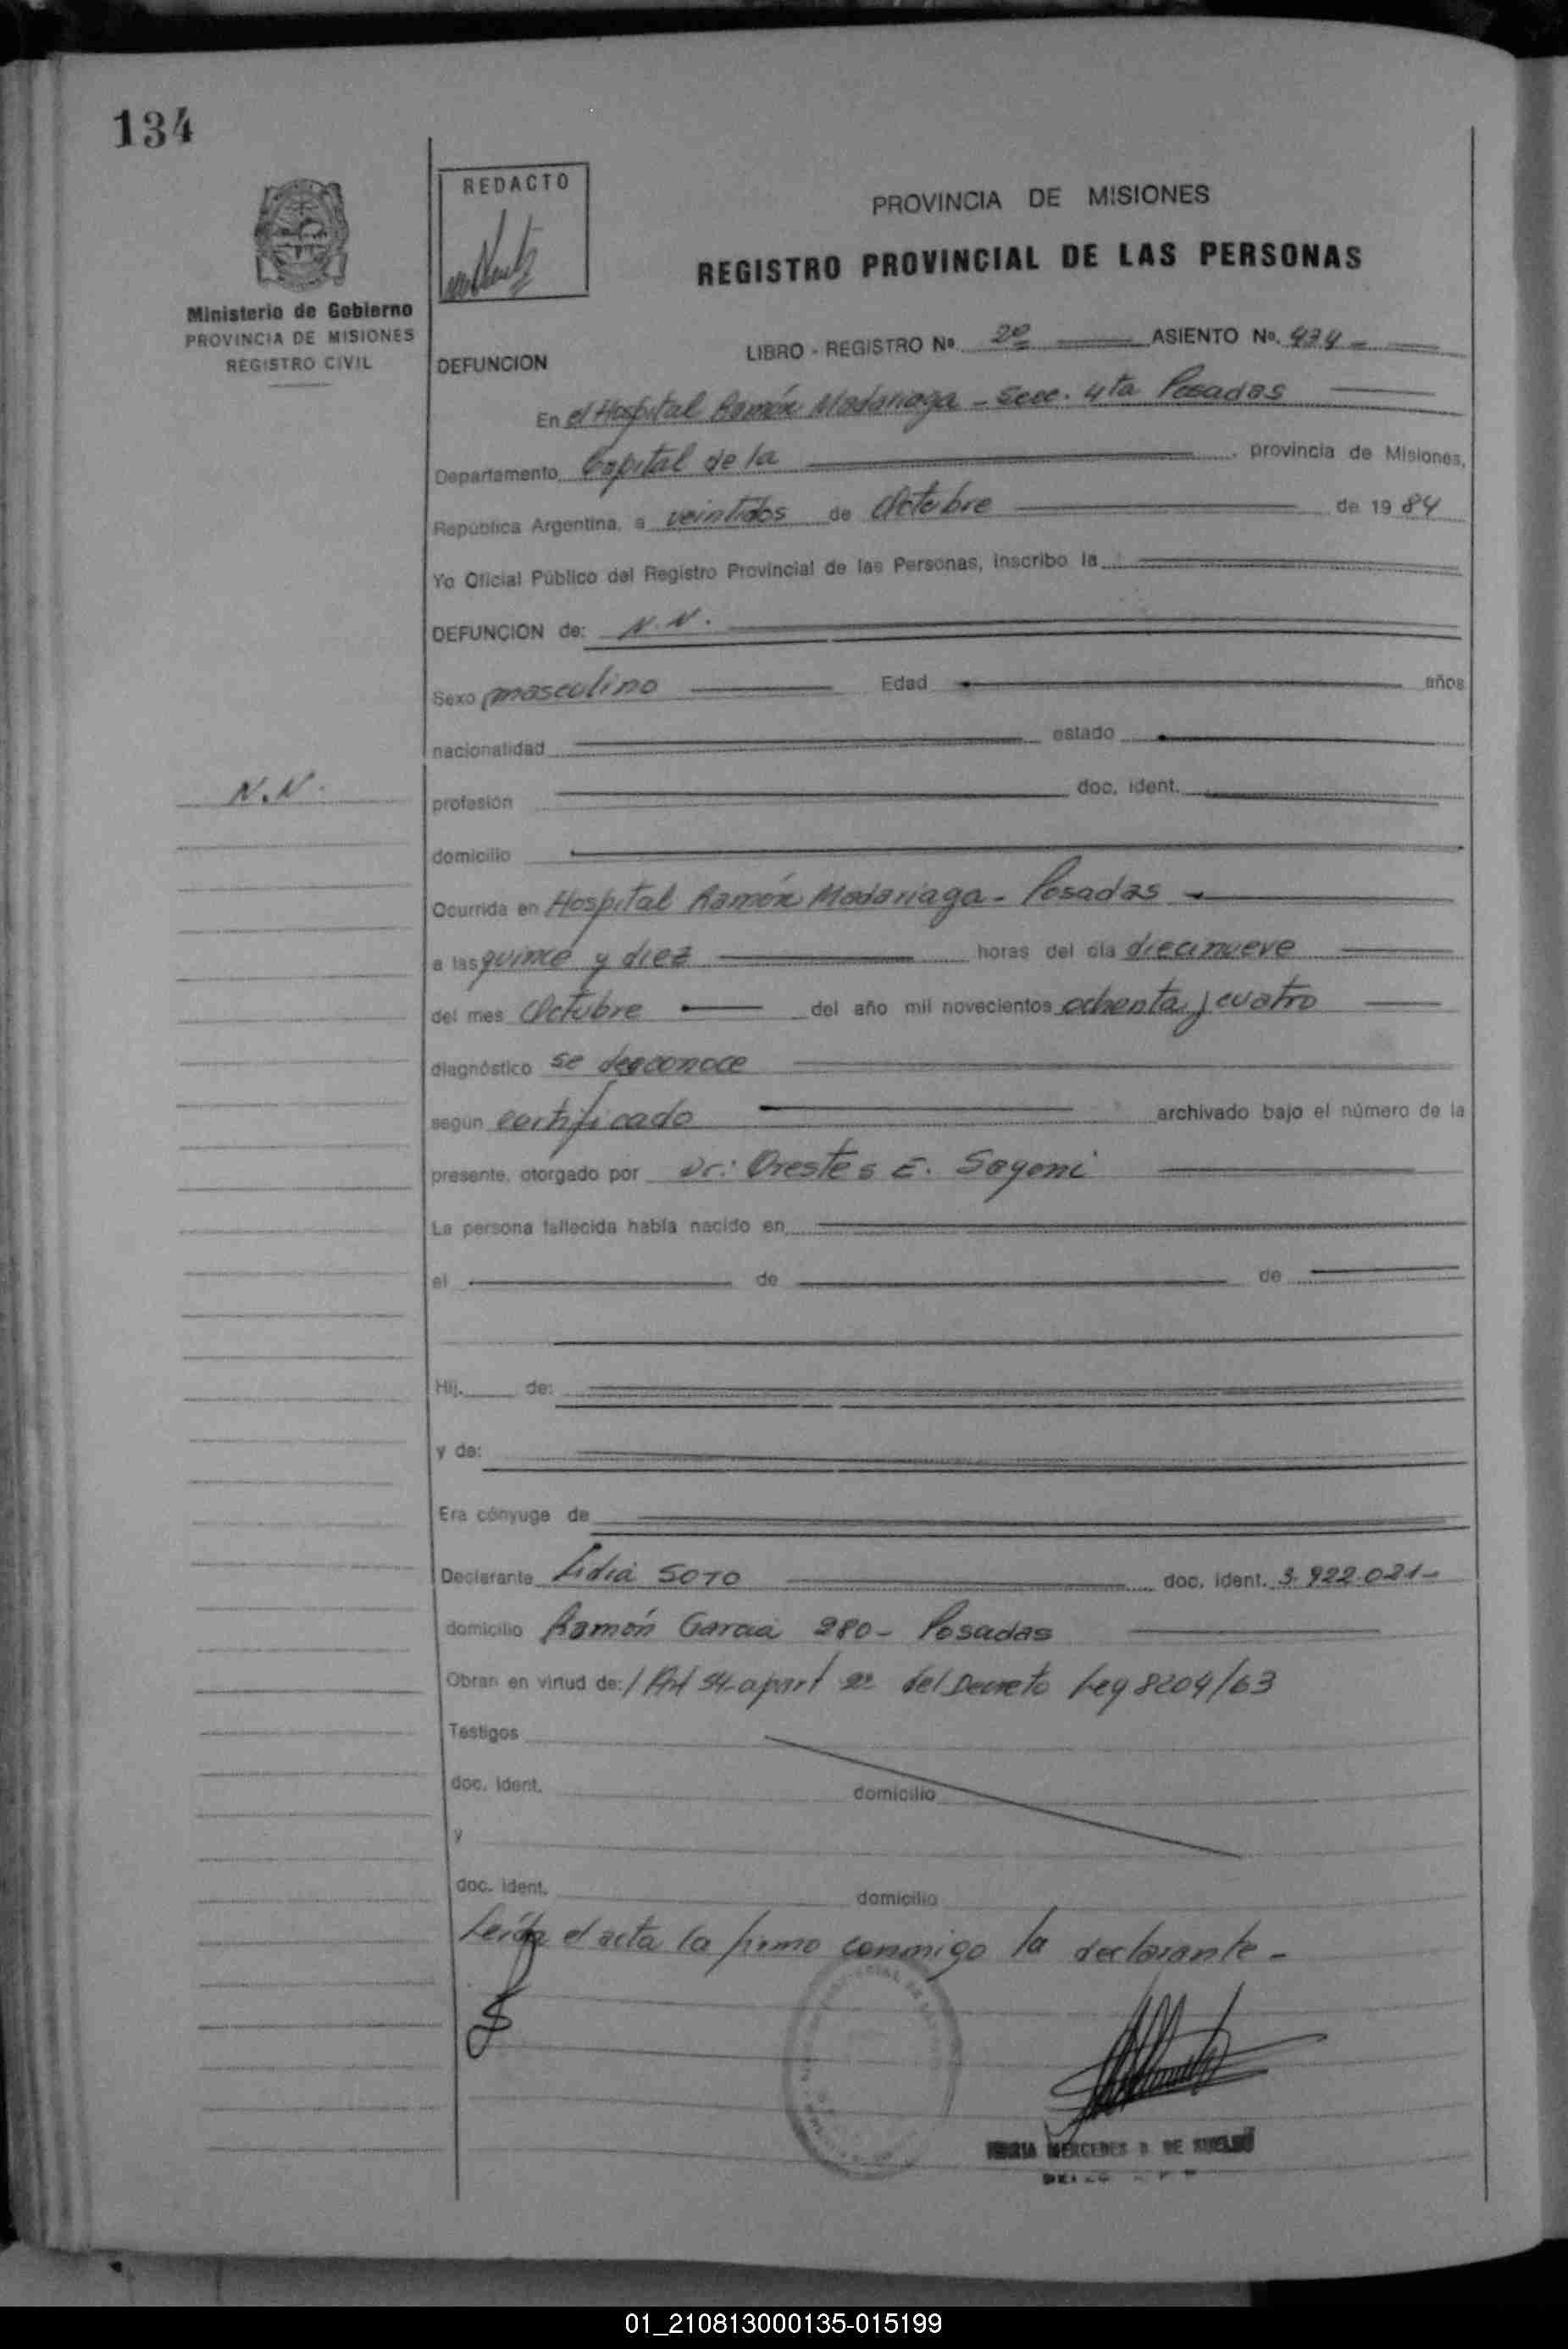 134
REDACTO
PROVINCIA DE MISIONES
REGISTRO PROVINCIAL DE LAS PERSONAS
Ministerio de Gobierno
PROVINCIA DE MISIONES
REGISTRO CIVIL
LIBRO - REGISTRO Nº 2º ASIENTO Nº. 474
DEFUNCION
En el Hospital Ramón Madariaga - Secc. 4ta Posadas
Departamento Capital de la , provincia de Misiones,
República Argentina, a veintidos de Octubre de 1984
Yo Oficial Público del Registro Provincial de las Personas, inscribo la
DEFUNCION de: N.N.
Sexo masculino Edad años
nacionalidad estado
N.N.
profesión doc. ident.
domicilio
Ocurrida en Hospital Ramón Madariaga - Posadas
a las quince y diez horas del día diecinueve
del mes Octubre del año mil novecientos ochenta y cuatro
diagnóstico se desconoce
según certificado archivado bajo el número de la
presente, otorgado por Dr: Orestes E.
La persona fallecida había nacido en
el de de
Hij. de:
y de:
Era cónyuge de
Declarante Lidia SOTO doc. ident. 3.922.021-
domicilio Ramón Garcia 280- Posadas
Obran en virtud de: Art 54 apart 2º del Decreto Ley 8204/63
Testigos
doc. ident. domicilio
y
doc. ident. domicilio
Leída el acta la firmo conmigo la declarante -
MARIA MERCEDES D. DE
01_210813000135-015199